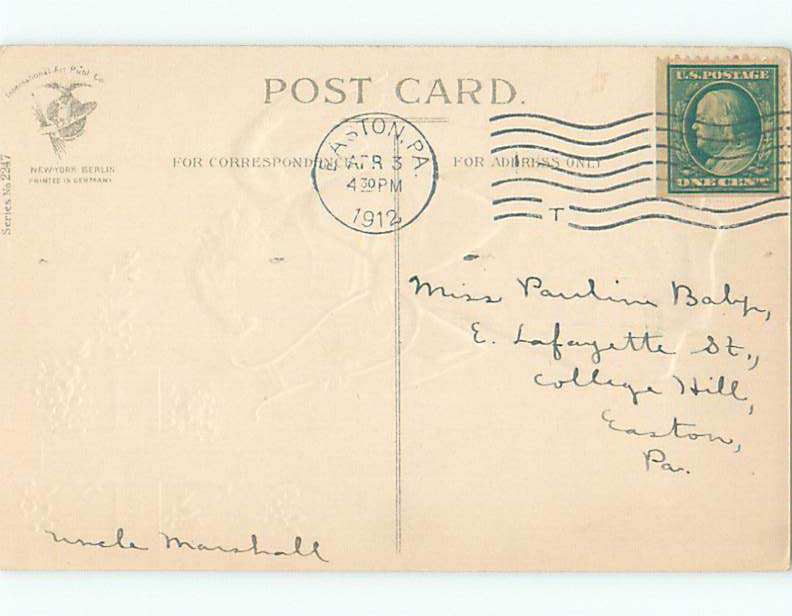 International Art Publ. Co.
NEW-YORK BERLIN
PRINTED IN GERMANY
Series No 2247
POST CARD.
FOR CORRESPONDENCE
FOR ADDRESS ONLY
EASTON, PA.
APR 3
4 30 PM
1912
T
U.S. POSTAGE
ONE CENT
Miss Pauline
E. Lafayette St.,
College Hill,
Easton,
Pa.
Uncle Marshall